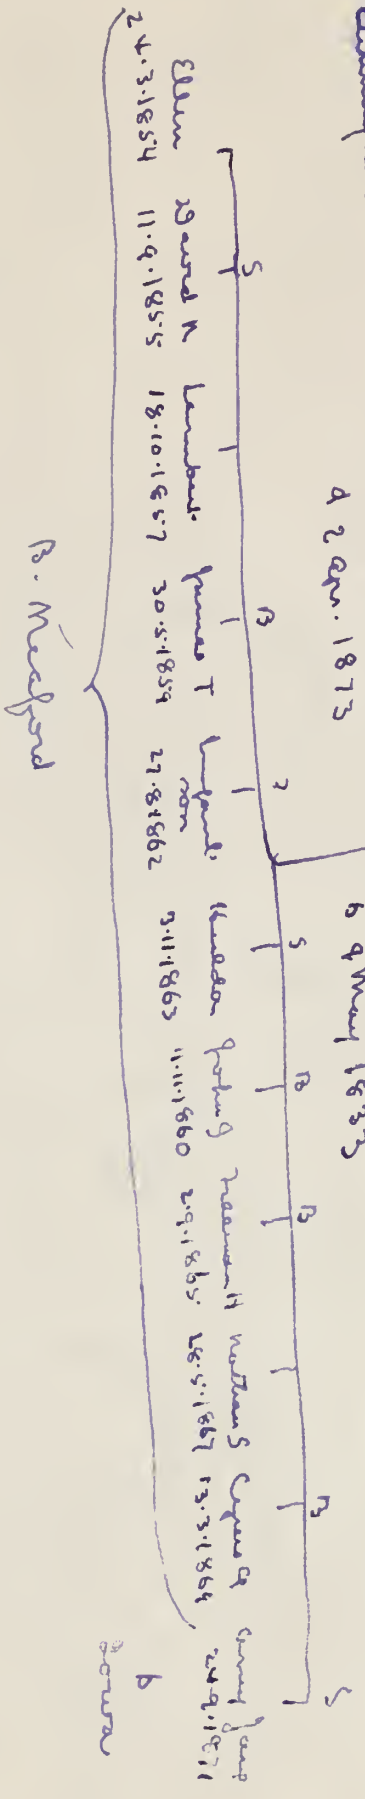 d 2 Apr. 1873
b 9 May 1833
S B ? S B B B S
Ellen David N Lambert James T Infant son Sheldon John J Freeman H Nathan S Cyrus A Amy Jane
24.3.1854 11.9.1855 18.10.1857 30.5.1859 27.8.1862 3.11.1863 11.11.1860 2.9.1865 28.5.1867 13.3.1869 24.9.1871
B. Meaford
b Iowa